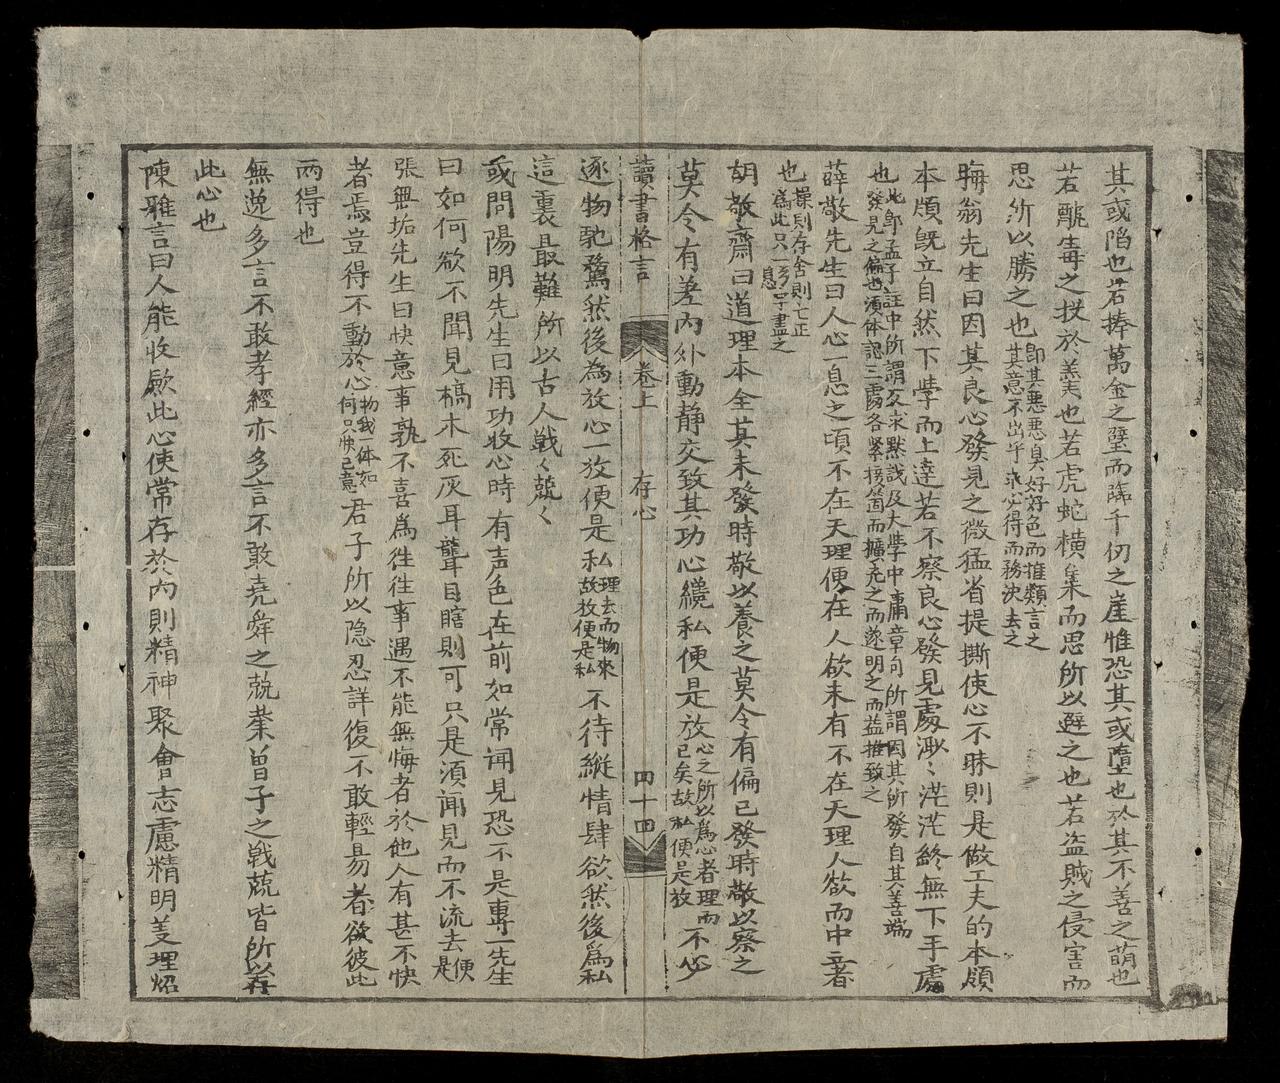 其或陷也若捧萬金之璧而臨千仞之崖惟恐其或墮也於其不善之萌也
若酖毒之投於羹也若虎蛇橫集而思所以避之也若盜賊之侵害而
思所以勝之也即其惡惡臭好好色而推類言之其意不出乎求必得而務決去之
晦翁先生曰因其良心發見之微猛省提撕使心不昧則是做工夫的本領
本領旣立自然下學而上達若不察良心發見處渺〻茫茫終無下手處
也此卽孟子註中所謂反求默識及大學中庸章句所謂因其所發自其善端發見之偏也須体認三處各緊接箇而擴充之而遂明之而益推致之
薛敬先生曰人心一息之頃不在天理便在人欲未有不在天理人欲而中立者
也操則存舍則亡正爲此只一息字盡之
胡敬齋曰道理本全其未發時敬以養之莫令有偏已發時敬以察之
莫令有差內外動靜交致其功心纔私便是放心之所以爲心者理而已矣故私便是放不必
讀書格言 卷上 存心 四十四
逐物馳騖然後為放心一放便是私理去而物來故放便是私不待縱情肆欲然後爲私
這裏最難所以古人戰〻兢〻
或問陽明先生曰用功收心時有声色在前如常闻見恐不是專一先生
曰如何欲不聞見槁木死灰耳聾目瞎則可只是須闻見而不流去便是
張無垢先生曰快意事孰不喜爲徃徃事過不能無悔者於他人有甚不快
者焉豈得不動於心物我一体如何只快己意君子所以隐忍詳復不敢輕易者欲彼此
兩得也
無逸多言不敢孝經亦多言不敢堯舜之兢業曾子之戰兢皆所以存
此心也
陳雅言曰人能收歛此心使常存於內則精神聚會志慮精明義理炤